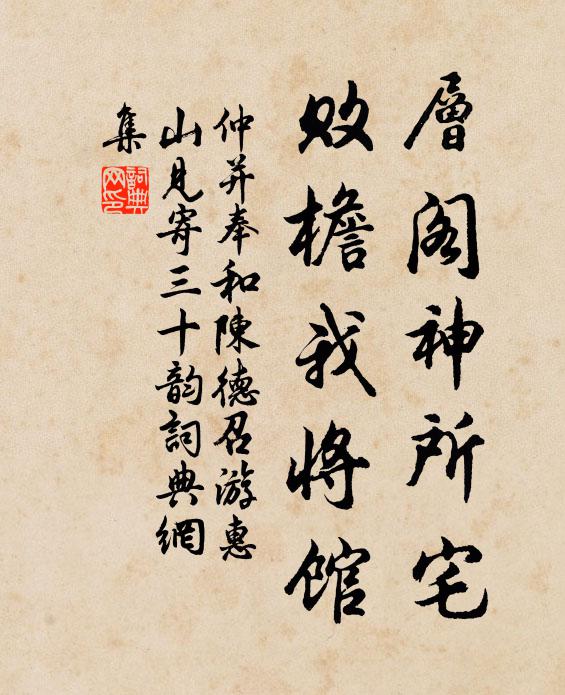 層閣神所宅
敗檐我將館
仲并奉和陳德召游惠
山見寄三十韵詞典網
集
詞典網印